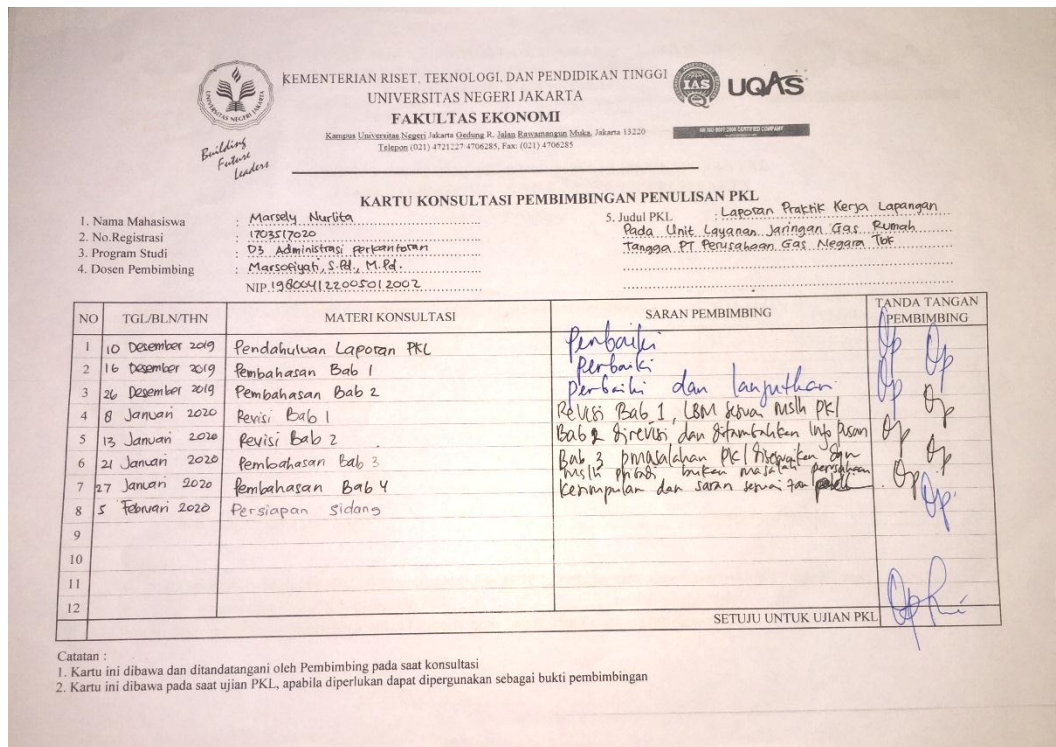 KEMENTERIAN RISET, TEKNOLOGI, DAN PENDIDIKAN TINGGI
UNIVERSITAS NEGERI JAKARTA
FAKULTAS EKONOMI
Kampus Universitas Negeri Jakarta Gedung R, Jalan Rawamangun Muka, Jakarta 13220
Telepon (021) 4721227/4706285, Fax: (021) 4706285
UNIVERSITAS NEGERI JAKARTA
Building Future Leaders
IAS
UQAS
KARTU KONSULTASI PEMBIMBINGAN PENULISAN PKL
1. Nama Mahasiswa : Marsely Nurlita
2. No.Registrasi : 1703517020
3. Program Studi : D3 Administrasi Perkantoran
4. Dosen Pembimbing : Marsofiyati, S.Pd., M.Pd.
NIP.198004122005012002
5. Judul PKL : Laporan Praktik Kerja Lapangan
Pada Unit Layanan Jaringan Gas Rumah
Tangga PT Perusahaan Gas Negara Tbk
NO TGL/BLN/THN MATERI KONSULTASI SARAN PEMBIMBING TANDA TANGAN PEMBIMBING
1 10 Desember 2019 Pendahuluan Laporan PKL Perbaiki
2 16 Desember 2019 Pembahasan Bab 1 Perbaiki
3 26 Desember 2019 Pembahasan Bab 2 Perbaiki dan lanjutkan
4 8 Januari 2020 Revisi Bab 1 Revisi Bab 1, LBM sesuai mslh PKL
5 13 Januari 2020 Revisi Bab 2 Bab 2 direvisi dan ditambahkan Info
6 21 Januari 2020 Pembahasan Bab 3 Bab 3 pmasalahan PKL disesuaikan dgn
mslh pribadi bukan masalah perusahaan
7 27 Januari 2020 Pembahasan Bab 4 Kesimpulan dan saran sesuai
8 5 Februari 2020 Persiapan Sidang
9
10
11
12
SETUJU UNTUK UJIAN PKL
Catatan :
1. Kartu ini dibawa dan ditandatangani oleh Pembimbing pada saat konsultasi
2. Kartu ini dibawa pada saat ujian PKL, apabila diperlukan dapat dipergunakan sebagai bukti pembimbingan